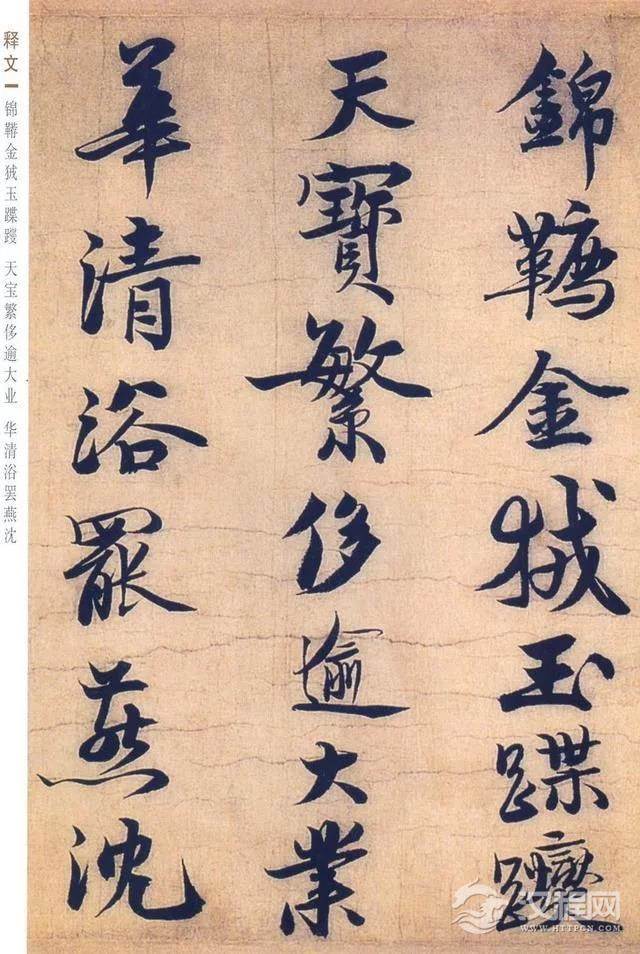 錦韉金狨玉蹀躞
天寶繁侈逾大業
華清浴罷燕沈
释文
锦鞯金狨玉蹀躞 天宝繁侈逾大业 华清浴罢燕沈
汉程网
WWW.HTTPCN.COM